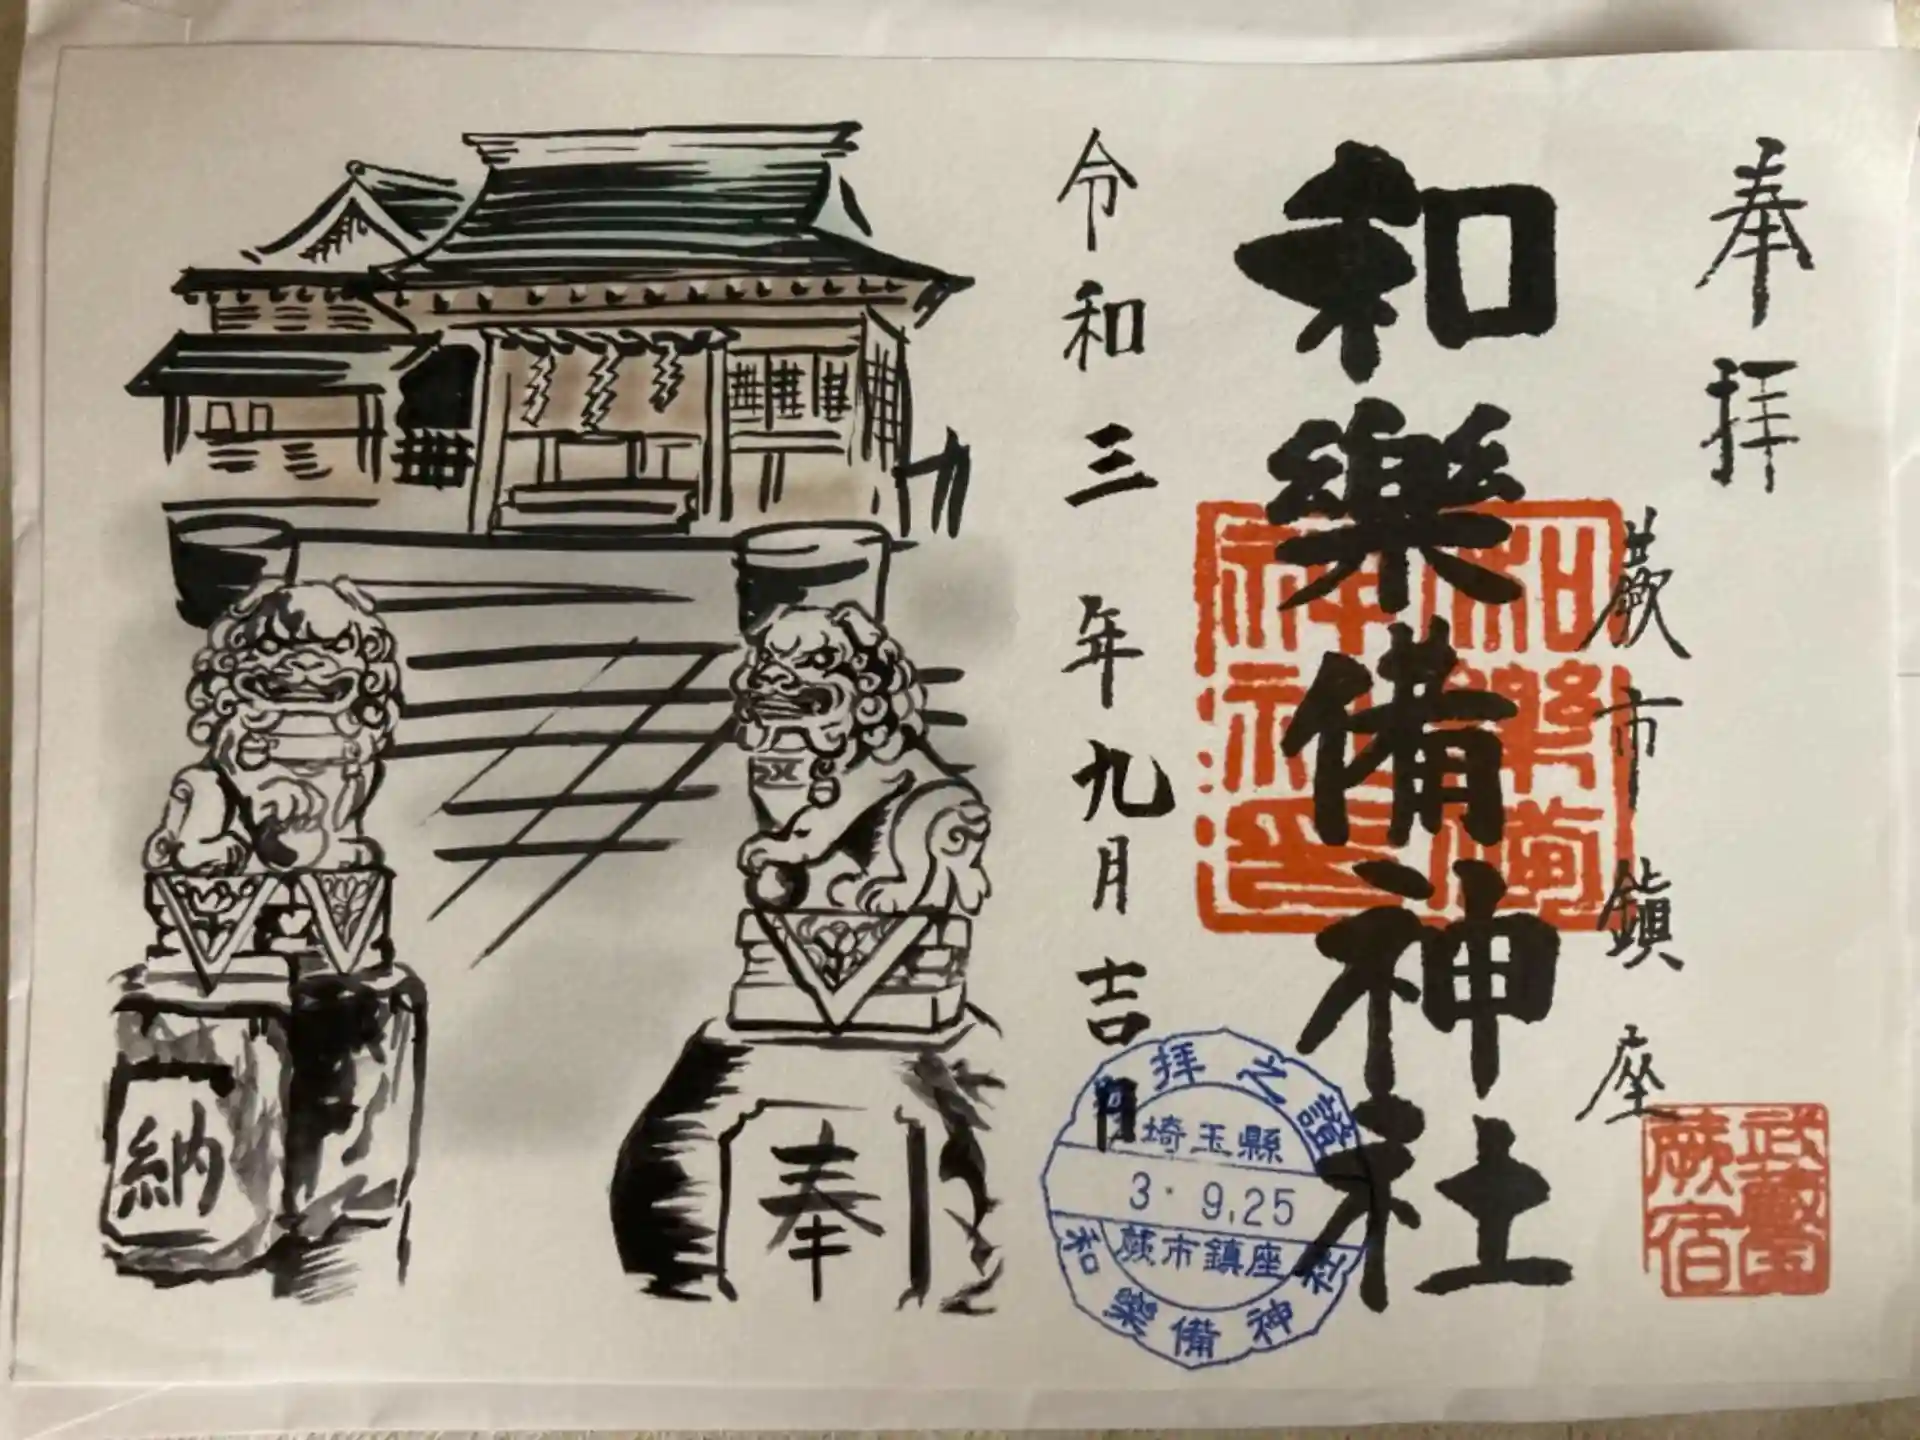 奉拝
蕨市鎮座
武蔵国
蕨宿
和樂備神社
和樂備
神社印
令和三年九月吉日
参拝之證
埼玉縣
3.9.25
蕨市鎮座
和樂備神社
奉
納